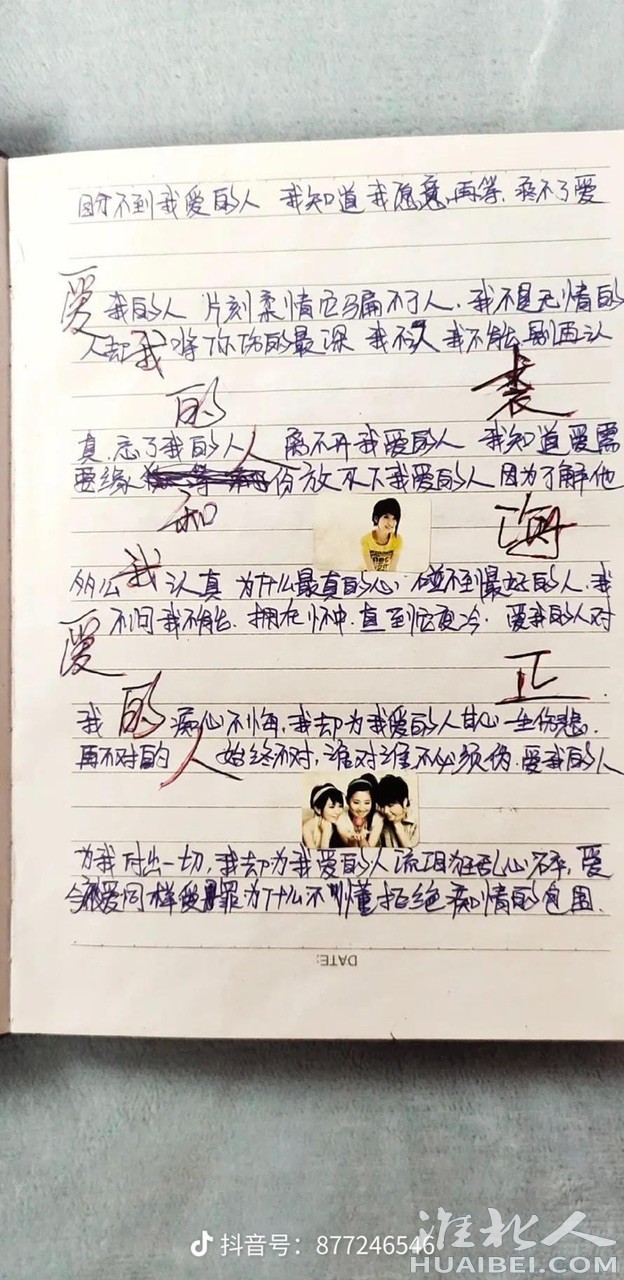 盼不到我爱的人 我知道我愿意再等. 疼不了爱
爱
我的人 片刻柔情它骗不了人. 我不是无情的
人却 将你伤的最深 我不忍 我不能 别再认
我
的 裘
真. 忘了我的人 离不开我爱的人 我知道爱需
人
要缘 份放不下我爱的人 因为了解他
和 海
多么 认真 为什么最真的心 碰不到最好的人. 我
我
不问我不能. 拥在怀中. 直到它变冷. 爱我的人对
爱
的 正
我 痴心不悔, 我却为我爱的人甘心一生伤悲.
再不对的 始终不对, 谁对谁不必须伪. 爱我的人
人
为我付出一切, 我却为我爱的人流泪狂乱心碎, 爱
被爱同样受罪 为什么不懂拒绝痴情的包围.
DATE:
抖音号: 877246546
淮北人
HUAIBEI.COM